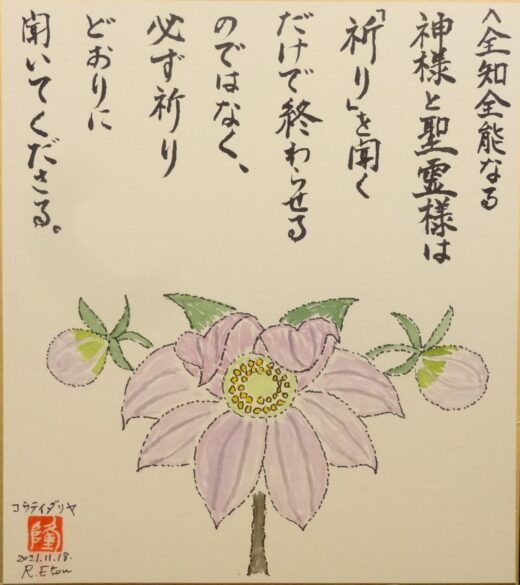 全知全能なる
神様と聖霊様は
「祈り」を聞く
だけで終わらせる
のではなく、
必ず祈り
どおりに
聞いてくださる。
コウテイダリヤ
隆
2021.11.18.
R.Etou